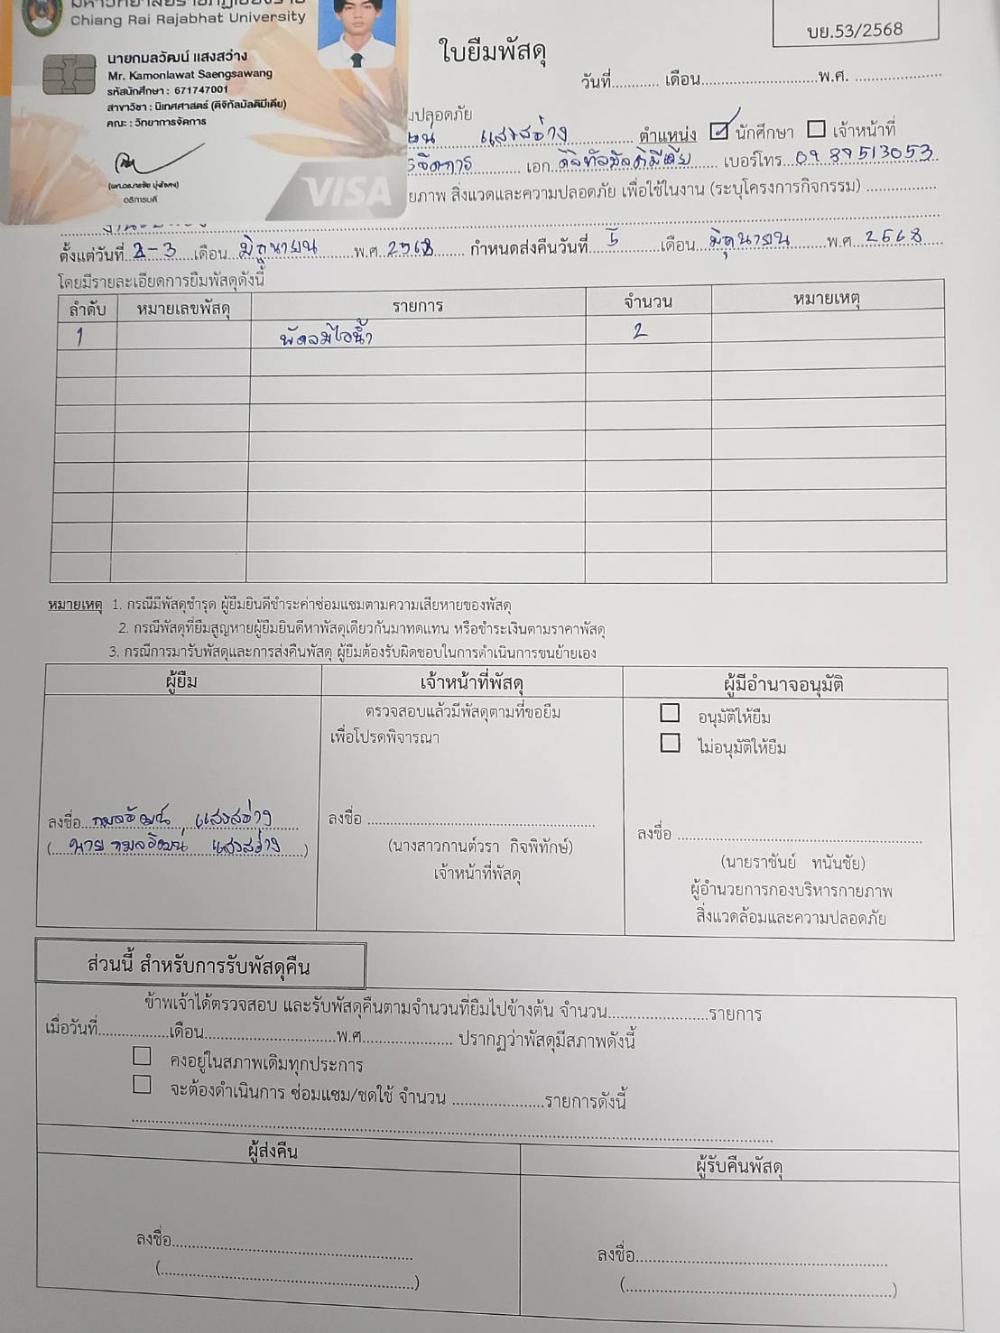 Chiang Rai Rajabhat University
นายกมลวัฒน์ แสงสว่าง
Mr. Kamonlawat Saengsawang
รหัสนักศึกษา : 671747001
สาขาวิชา : นิเทศศาสตร์ (ดิจิทัลมัลติมีเดีย)
คณะ : วิทยาการจัดการ
อธิการบดี
VISA
บย.53/2568
ใบยืมพัสดุ
วันที่............ เดือน..............................พ.ศ. ......................
มปลอดภัย
แสงสว่าง ตำแหน่ง ☑ นักศึกษา ☐ เจ้าหน้าที่
จัดการ เอก ดิจิทัลมัลติมีเดีย เบอร์โทร 0989513053
ยภาพ สิ่งแวดและความปลอดภัย เพื่อใช้ในงาน (ระบุโครงการกิจกรรม) ..................
ตั้งแต่วันที่ 2-3 เดือน มิถุนายน พ.ศ 2568 กำหนดส่งคืนวันที่ 5 เดือน มิถุนายน พ.ศ 2568
โดยมีรายละเอียดการยืมพัสดุดังนี้
ลำดับ หมายเลขพัสดุ รายการ จำนวน หมายเหตุ
1 พัดลมไอน้ำ 2
หมายเหตุ 1. กรณีมีพัสดุชำรุด ผู้ยืมยินดีชำระค่าซ่อมแซมตามความเสียหายของพัสดุ
2. กรณีพัสดุที่ยืมสูญหายผู้ยืมยินดีหาพัสดุเดียวกันมาทดแทน หรือชำระเงินตามราคาพัสดุ
3. กรณีการมารับพัสดุและการส่งคืนพัสดุ ผู้ยืมต้องรับผิดชอบในการดำเนินการขนย้ายเอง
ผู้ยืม เจ้าหน้าที่พัสดุ ผู้มีอำนาจอนุมัติ
ตรวจสอบแล้วมีพัสดุตามที่ขอยืม ☐ อนุมัติให้ยืม
เพื่อโปรดพิจารณา ☐ ไม่อนุมัติให้ยืม
ลงชื่อ กมลวัฒน์ แสงสว่าง ลงชื่อ .................................................. ลงชื่อ ..................................................
(นาย กมลวัฒน์ แสงสว่าง) (นางสาวกานต์วรา กิจพิทักษ์) (นายราชันย์ ทนันชัย)
เจ้าหน้าที่พัสดุ ผู้อำนวยการกองบริหารกายภาพ
สิ่งแวดล้อมและความปลอดภัย
ส่วนนี้ สำหรับการรับพัสดุคืน
ข้าพเจ้าได้ตรวจสอบ และรับพัสดุคืนตามจำนวนที่ยืมไปข้างต้น จำนวน........................รายการ
เมื่อวันที่.................เดือน................................พ.ศ...................... ปรากฏว่าพัสดุมีสภาพดังนี้
☐ คงอยู่ในสภาพเดิมทุกประการ
☐ จะต้องดำเนินการ ซ่อมแซม/ชดใช้ จำนวน ......................รายการดังนี้
ผู้ส่งคืน ผู้รับคืนพัสดุ
ลงชื่อ.................................................. ลงชื่อ..................................................
(..................................................) (..................................................)